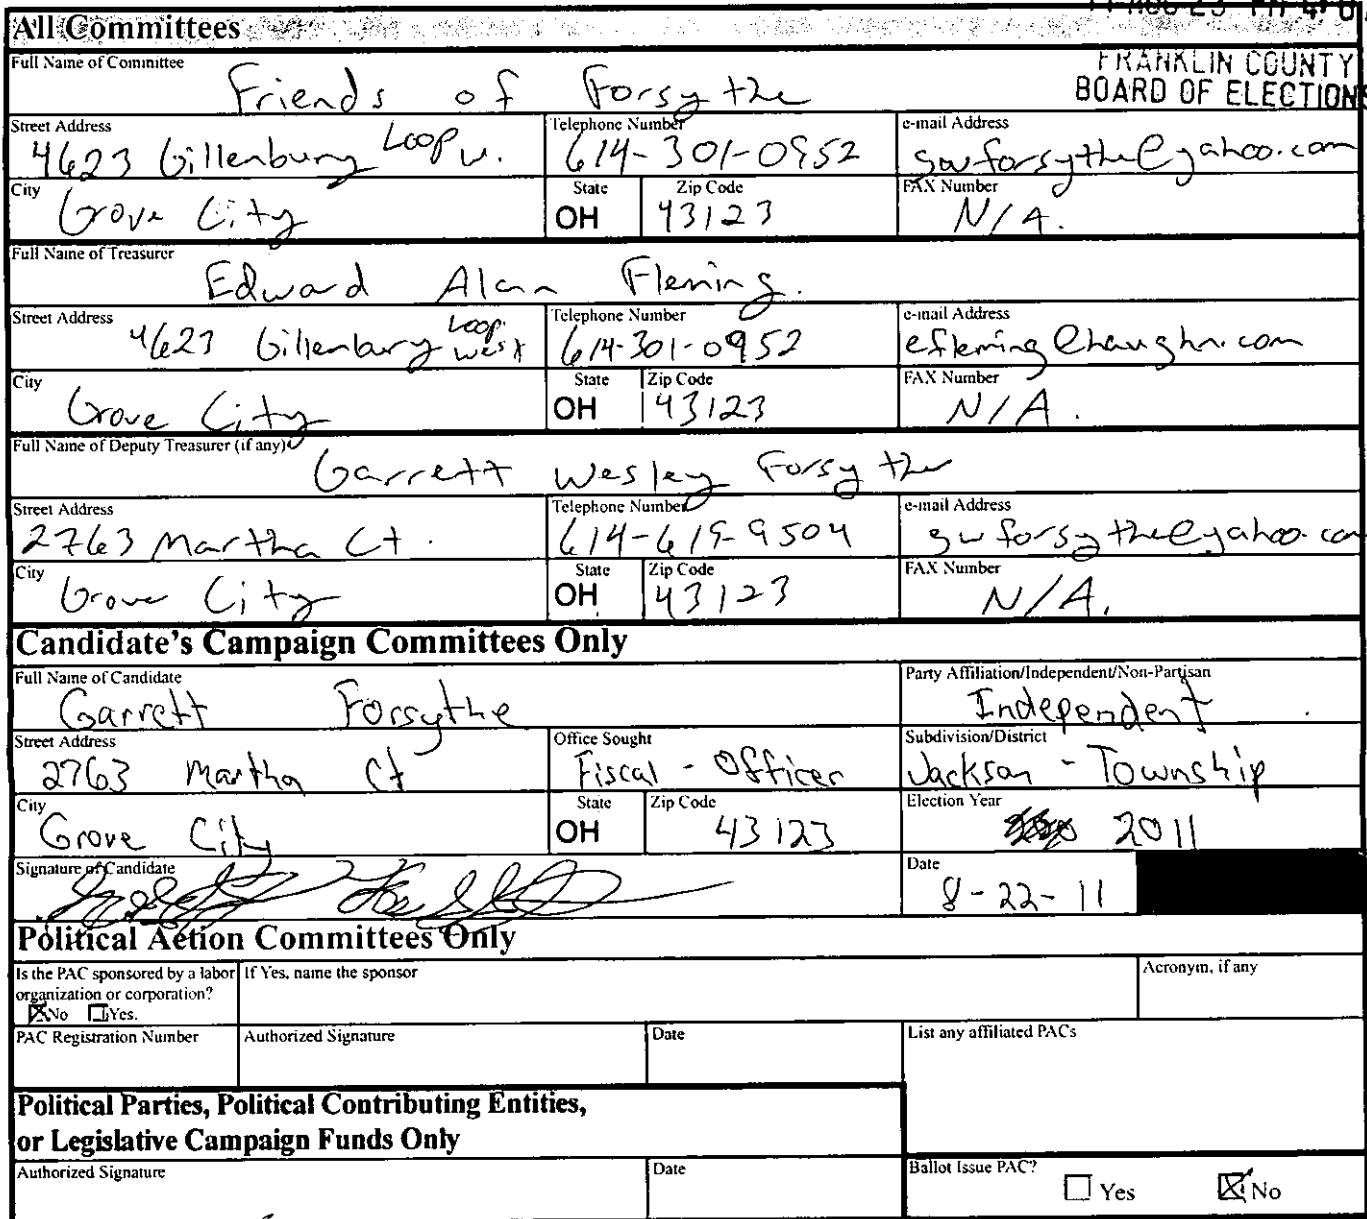 All Committees
FRANKLIN COUNTY
BOARD OF ELECTIONS
Full Name of Committee
Friends of Forsythe
Street Address
4623 Gillenbury Loop W.
Telephone Number
614-301-0952
e-mail Address
gwforsythe@yahoo.com
City
Grove City
State
OH
Zip Code
43123
FAX Number
N/A.
Full Name of Treasurer
Edward Alan Fleming.
Street Address
4623 Gillenbury Loop West
Telephone Number
614-301-0952
e-mail Address
efleming@haughn.com
City
Grove City
State
OH
Zip Code
43123
FAX Number
N/A.
Full Name of Deputy Treasurer (if any)
Garrett Wesley Forsythe
Street Address
2763 Martha Ct.
Telephone Number
614-619-9504
e-mail Address
gwforsythe@yahoo.com
City
Grove City
State
OH
Zip Code
43123
FAX Number
N/A.
Candidate's Campaign Committees Only
Full Name of Candidate
Garrett Forsythe
Party Affiliation/Independent/Non-Partisan
Independent
Street Address
2763 Martha Ct
Office Sought
Fiscal - Officer
Subdivision/District
Jackson - Township
City
Grove City
State
OH
Zip Code
43123
Election Year
2011
Signature of Candidate
Date
8-22-11
Political Action Committees Only
Is the PAC sponsored by a labor
organization or corporation?
No Yes.
If Yes, name the sponsor
Acronym, if any
PAC Registration Number
Authorized Signature
Date
List any affiliated PACs
Political Parties, Political Contributing Entities,
or Legislative Campaign Funds Only
Authorized Signature
Date
Ballot Issue PAC?
Yes No